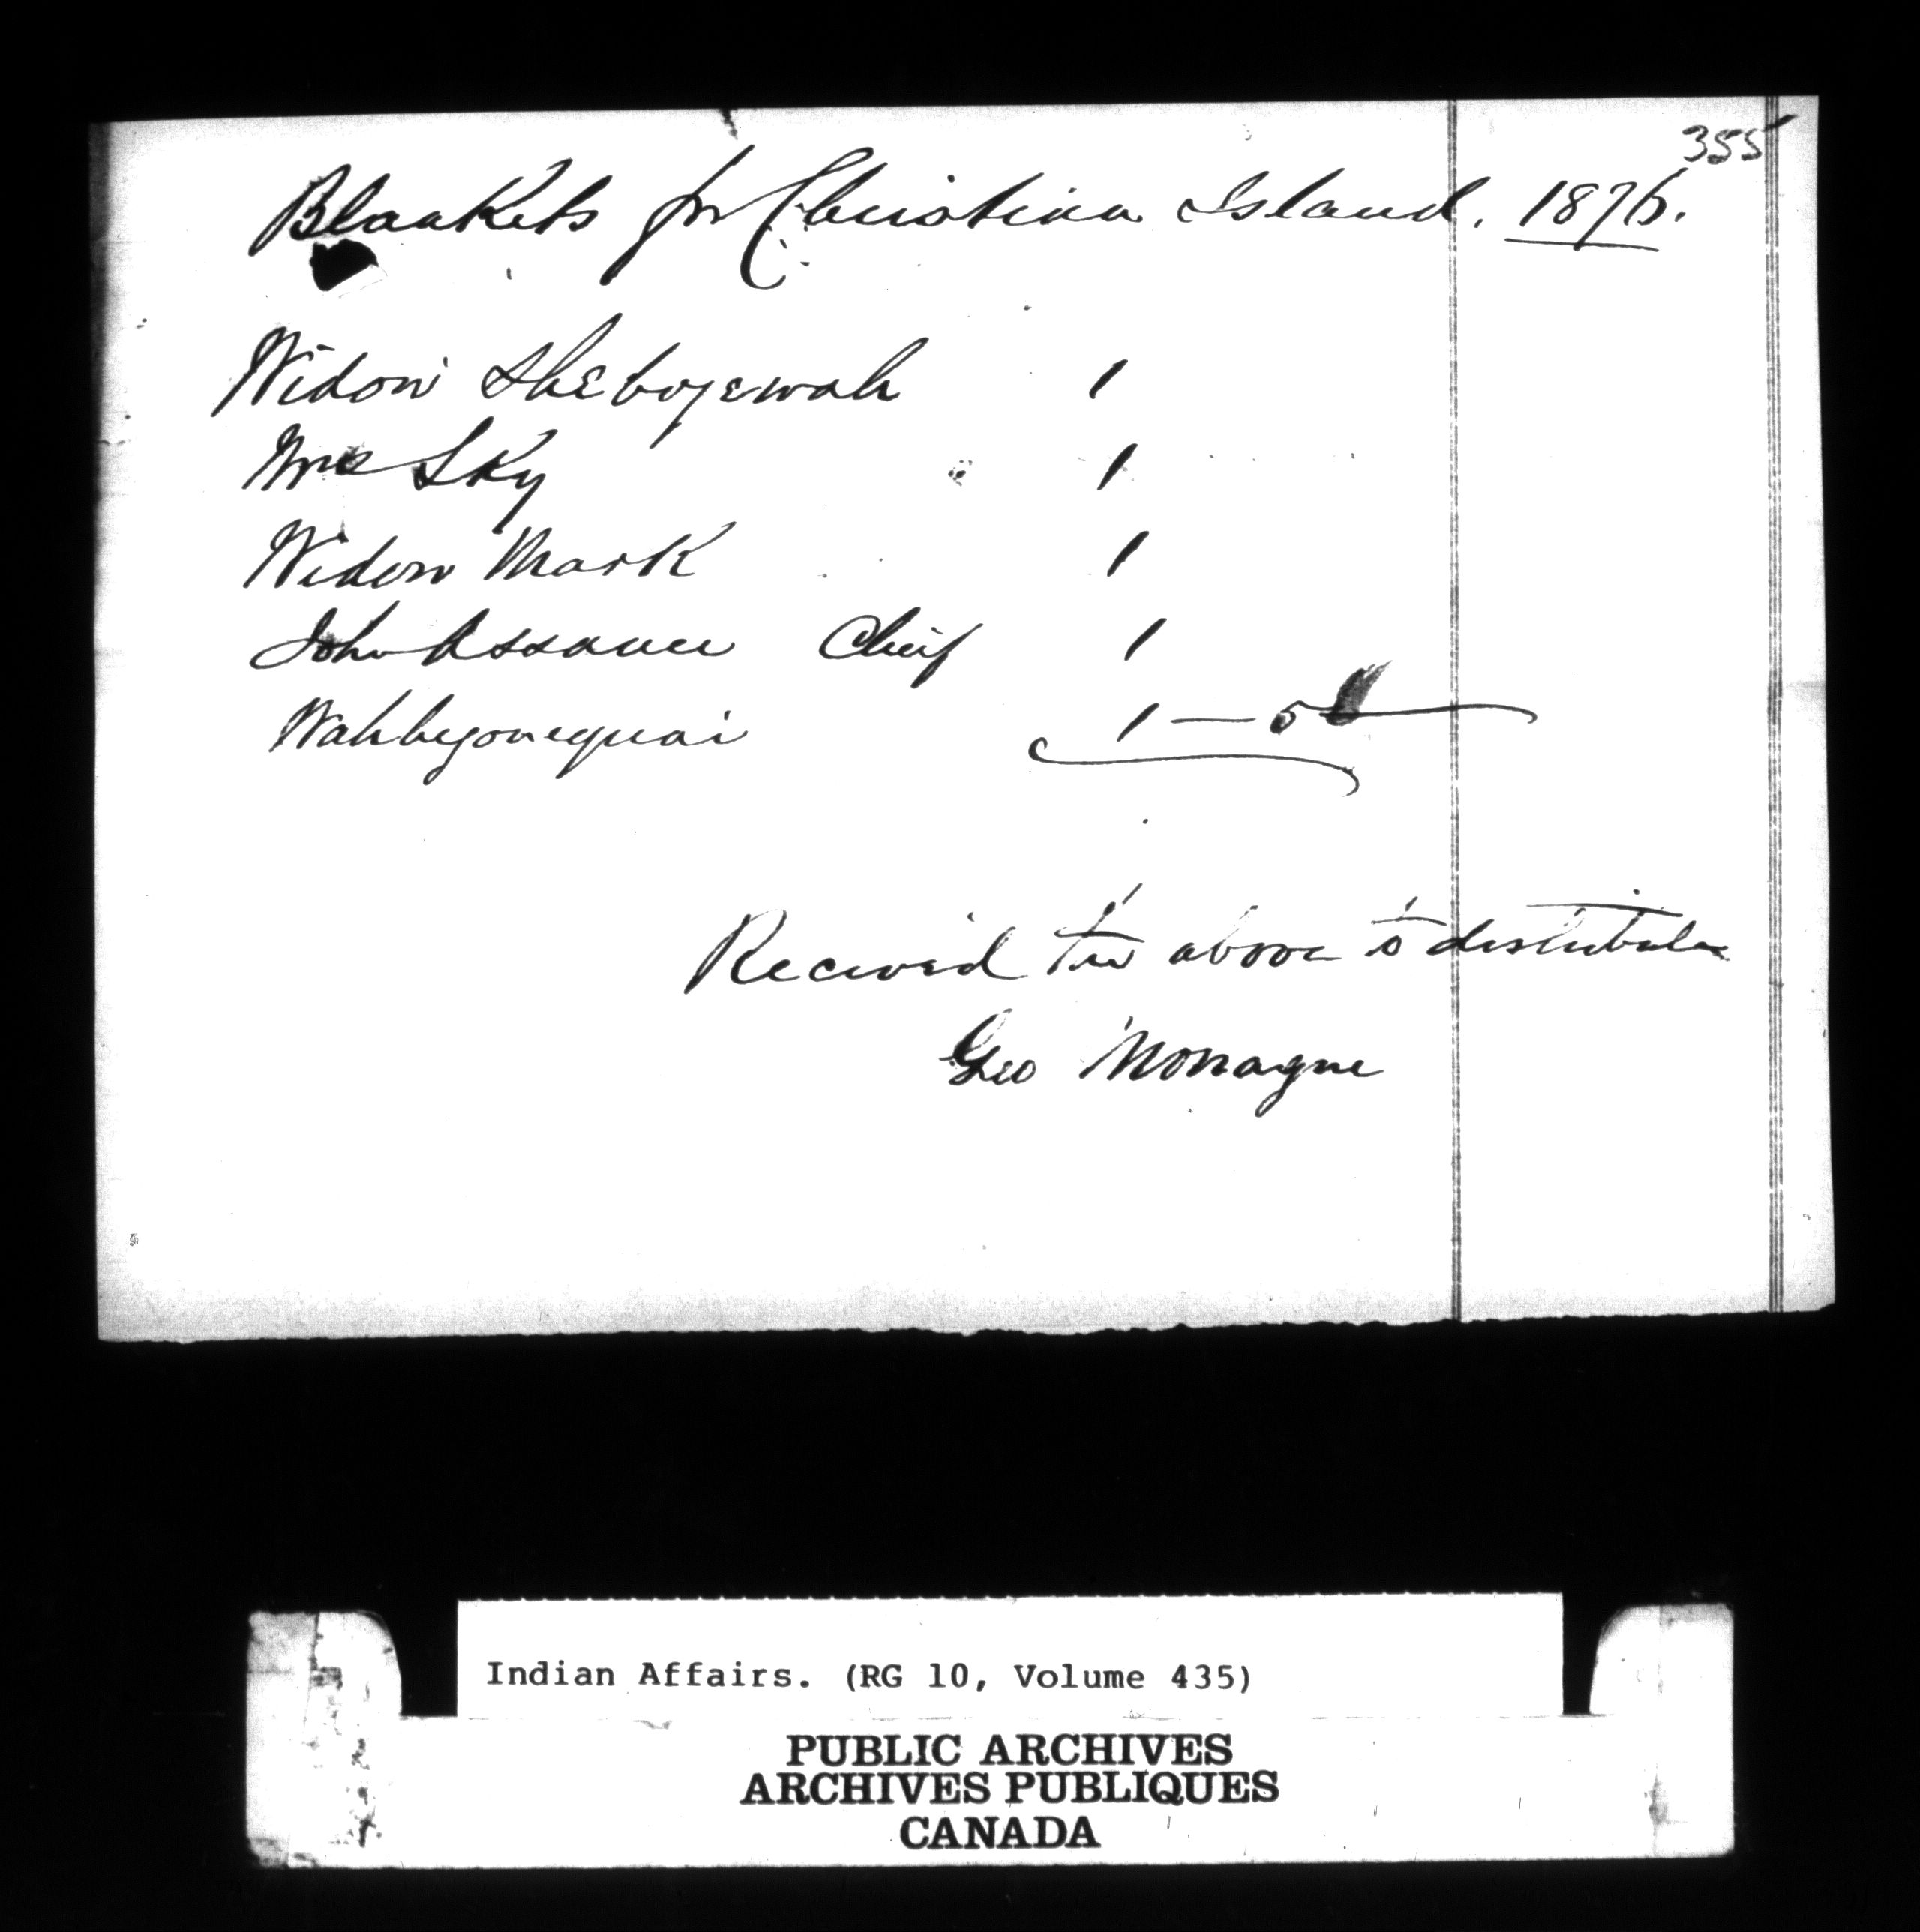 355
Blankets for Christian Island. 1876.
Widow Shebogewah 1
Mrs Sky 1
Widow Mark 1
John Assance Chief 1
Wahbegonequai 1 — 5
Received the above to distribute
Geo Monague
Indian Affairs. (RG 10, Volume 435)
PUBLIC ARCHIVES
ARCHIVES PUBLIQUES
CANADA